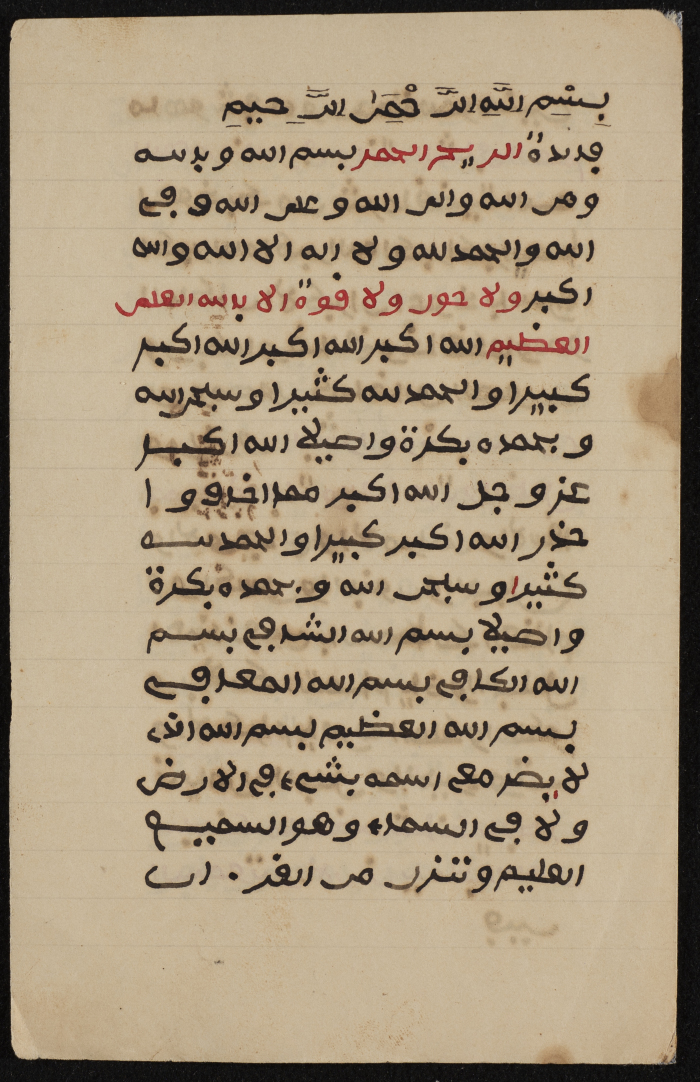 بِسْمِ اللَّهِ الرَّحْمَنِ الرَّحِيمِ
فايدة الريح الاحمر بسم الله وبالله
ومن الله والى الله وعلى الله وفي
الله والحمد لله ولا اله الا الله والله
اكبر ولا حول ولا قوة الا بالله العلي
العظيم الله اكبر الله اكبر الله اكبر
كبيرا والحمد لله كثيرا وسبحن الله
وبحمده بكرة واصيلا الله اكبر
عز وجل الله اكبر مما اخاف وا
حذر الله اكبر كبيرا والحمد لله
كثيرا وسبحن الله وبحمده بكرة
واصيلا بسم الله الشافي بسم
الله الكافي بسم الله المعافي
بسم الله العظيم بسم الله الذي
لا يضر مع اسمه بشيء في الارض
ولا في السماء وهو السميع
العليم وننزل من القر . ان